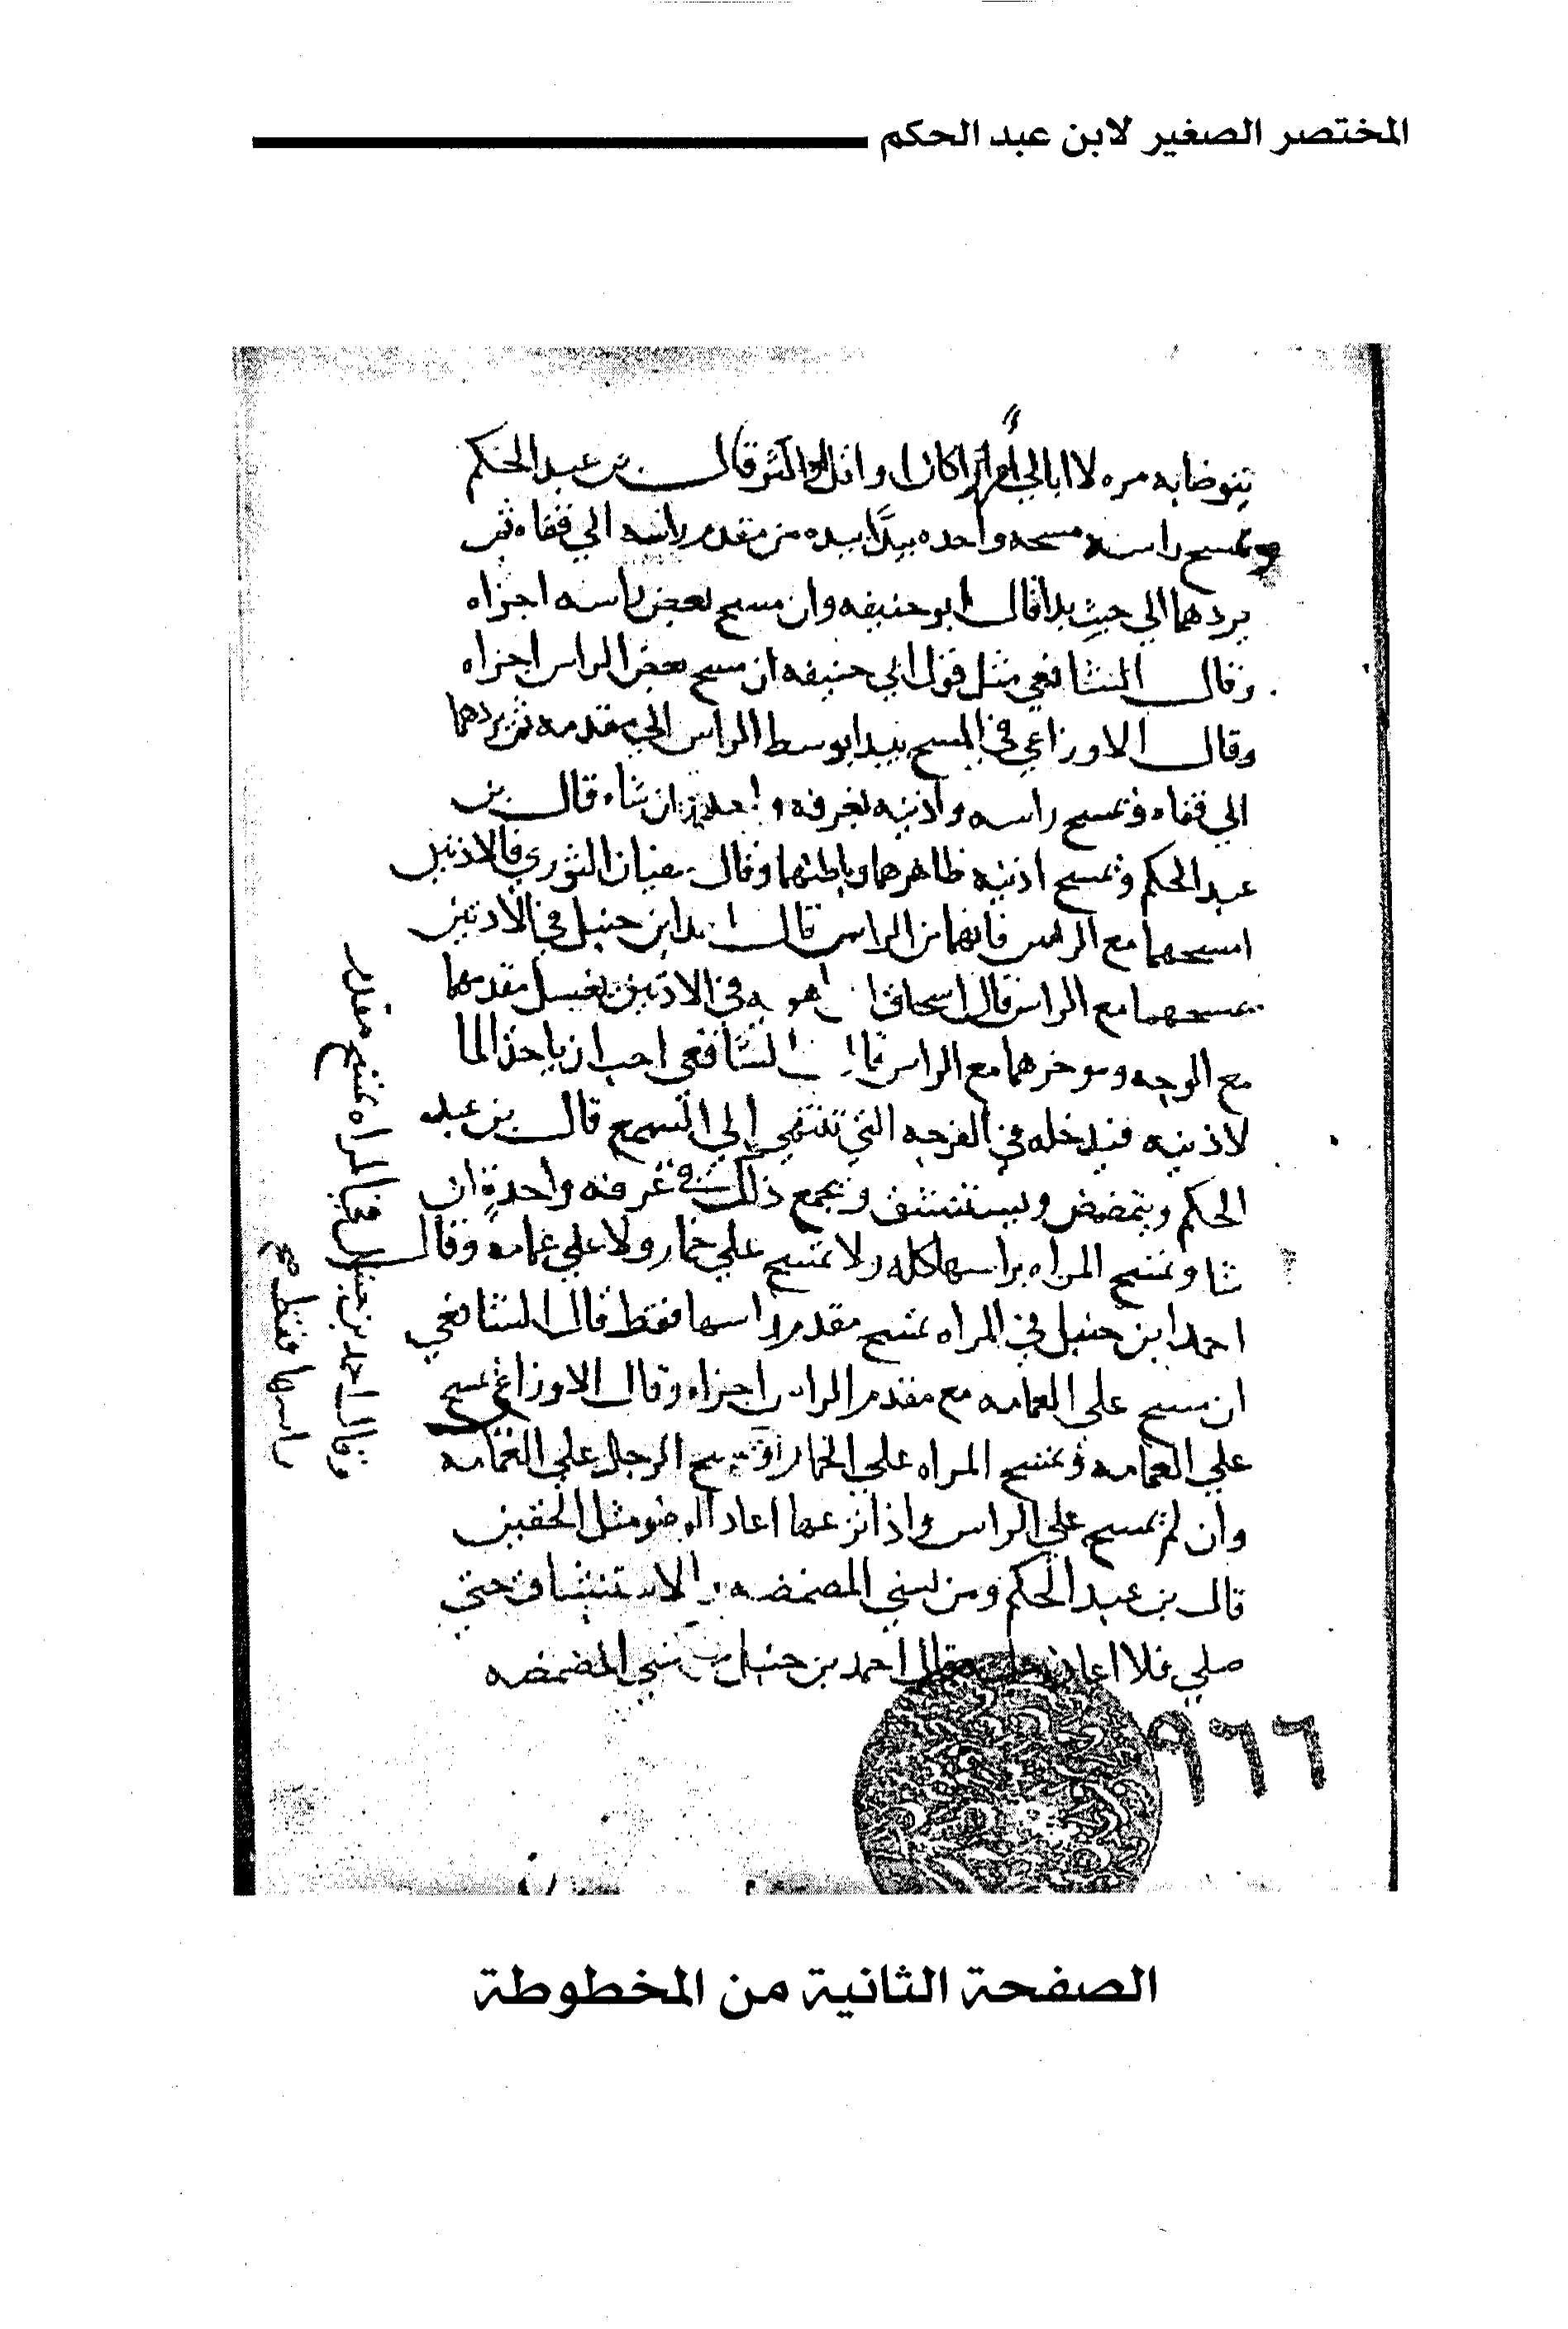 المختصر الصغير لابن عبد الحكم
يتوضا به مره لا ابالي كان او اكثر قال بن عبد الحكم
ويمسح راسه مسحه واحده يبدا بيده من مقدم راسه الي قفاه ثم
يردهما الي حيث بدا قال ابو حنيفه وان مسح بعض راسه اجزاه
وقال الشافعي مثل قول ابي حنيفه ان مسح بعض الراس اجزاه
وقال الاوزاعي في المسح يبدا بوسط الراس الي مقدمه ثم يردهما
الي قفاه ويمسح راسه واذنيه بغرفه ان شاء قال بن
عبد الحكم ويمسح اذنيه ظاهرهما وباطنهما وقال سفيان الثوري في الاذنين
امسحهما مع الراس فانهما من الراس قال ابن حنبل في الاذنين
يمسحهما مع الراس قال اسحاق في الاذنين يغسل مقدمهما
مع الوجه وموخرهما مع الراس قال الشافعي احب ان ياخذ الما
لاذنيه فيدخله في الفرجه التي تفضي الي السمع قال بن عبد
الحكم ويتمضمض ويستنشق ويجمع ذلك في غرفه واحدة ان
شا وتمسح المراه براسها كله ولا تمسح علي خمار ولا علي عمامه وقال
احمد ابن حنبل في المراه تمسح مقدم راسها فقط قال الشافعي
ان مسح علي العمامه مع مقدم الراس اجزاه وقال الاوزاعي يمسح
علي العمامه وتمسح المراه علي الخمار ويمسح الرجل علي العمامه
وان لم يمسح علي الراس واذا نزعها اعاد الوضو مثل الخفين
قال بن عبد الحكم ومن نسي المضمضه والاستنشاق حتي
صلي فلا اعاده عليه وقال احمد بن حنبل من نسي المضمضه
وقال احمد بن حنبل في المراه تمسح مقدم
راسها فقط صح
٩٦٦
الصفحة الثانية من المخطوطة